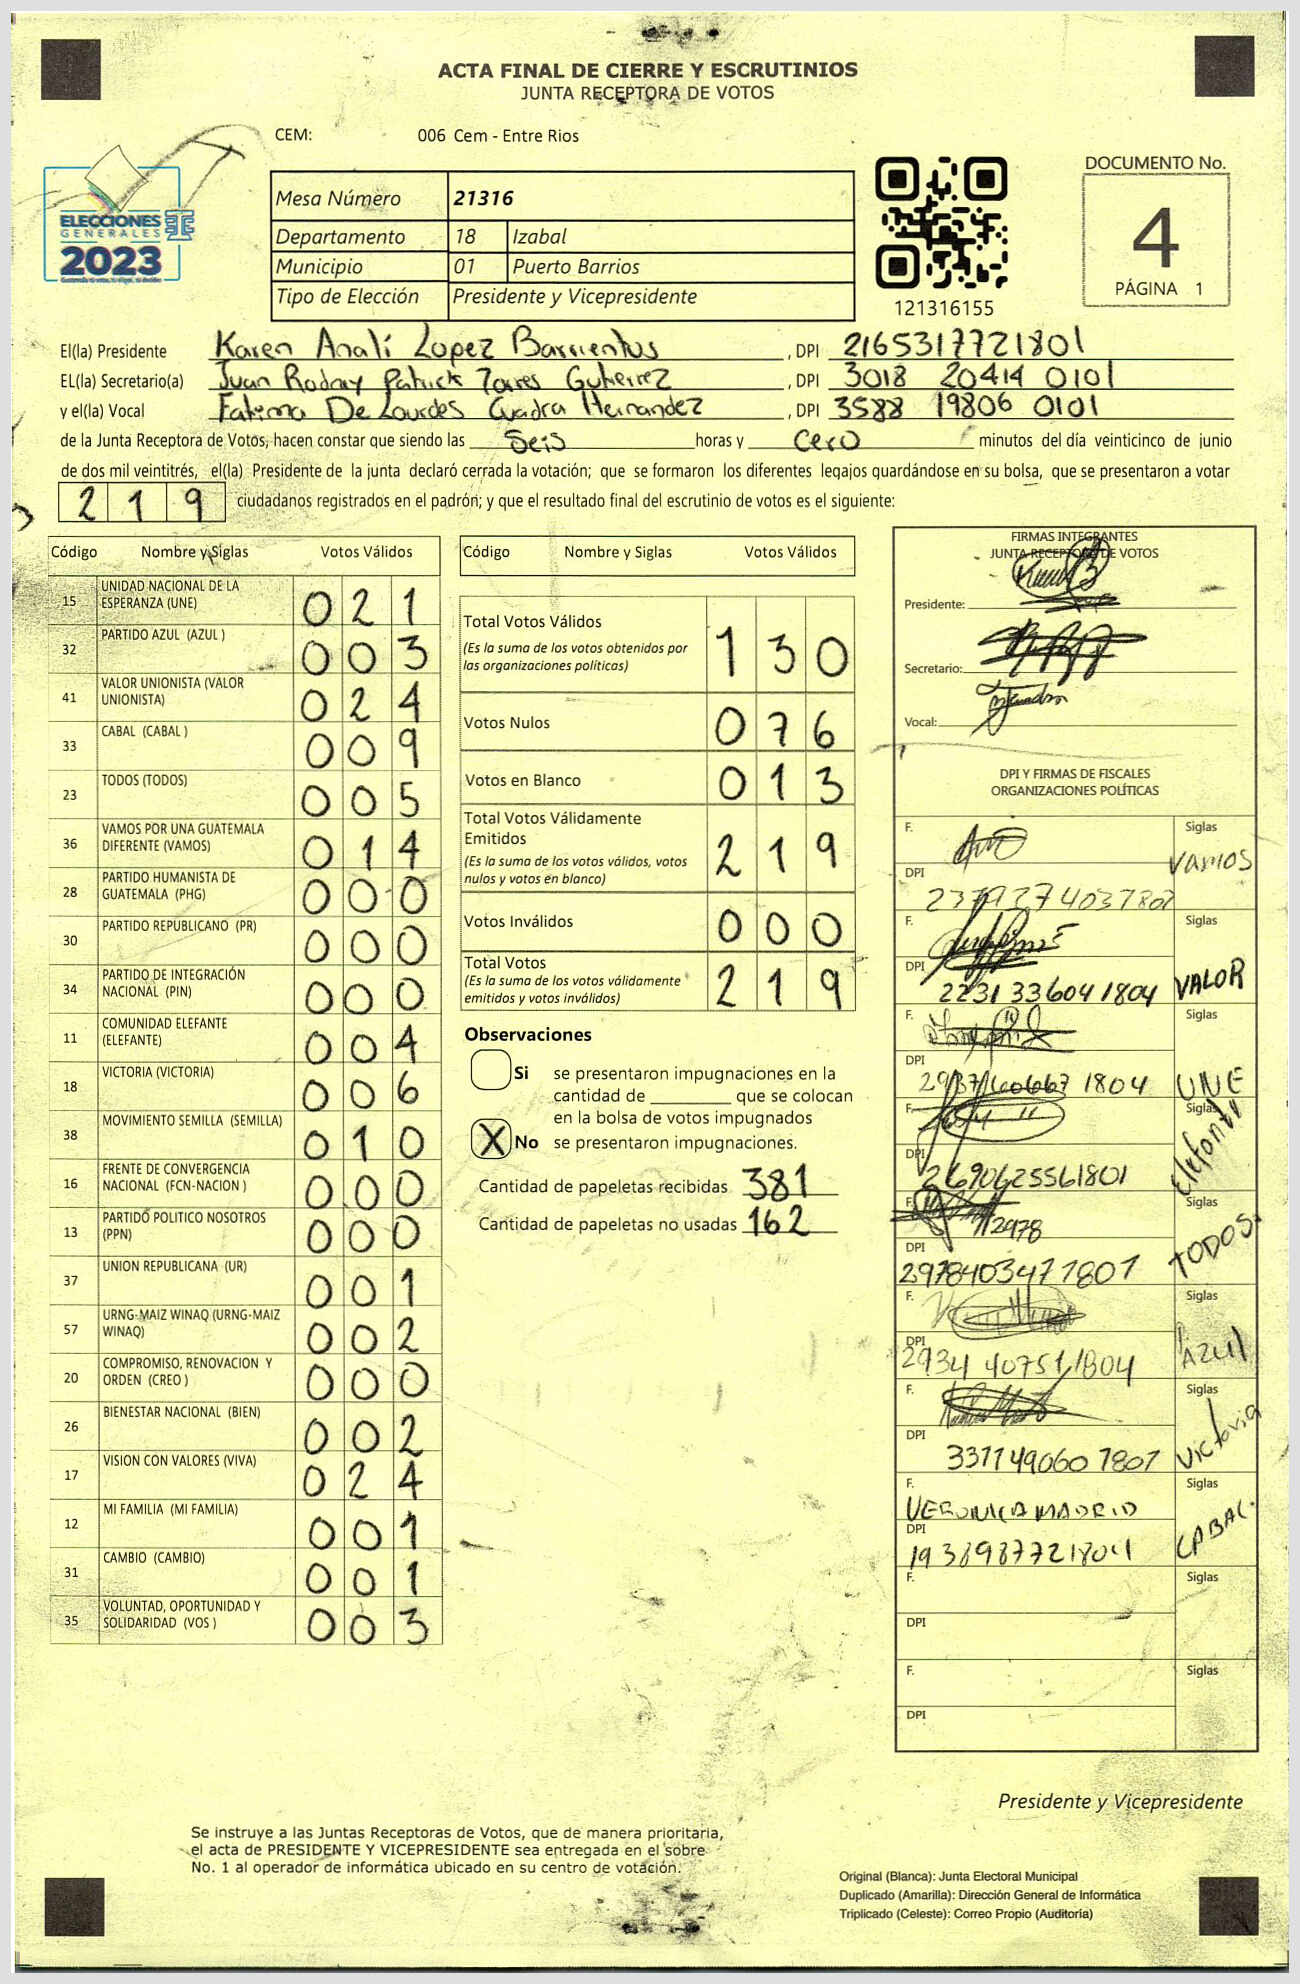 ACTA FINAL DE CIERRE Y ESCRUTINIOS
JUNTA RECEPTORA DE VOTOS
CEM: 006 Cem - Entre Rios
ELECCIONES
GENERALES
2023
Mesa Número 21316
Departamento 18 Izabal
Municipio 01 Puerto Barrios
Tipo de Elección Presidente y Vicepresidente
121316155
DOCUMENTO No.
4
PÁGINA 1
El(la) Presidente Karen Analí Lopez Barrientos, DPI 2165317721801
EL(la) Secretario(a) Juan Rodny Patrick Torres Gutierrez, DPI 3018 20414 0101
y el(la) Vocal Fatima De Lourdes Cuadra Hernandez, DPI 3588 19806 0101
de la Junta Receptora de Votos, hacen constar que siendo las seis horas y cero minutos del día veinticinco de junio
de dos mil veintitrés, el(la) Presidente de la junta declaró cerrada la votación; que se formaron los diferentes legajos guardándose en su bolsa, que se presentaron a votar
219 ciudadanos registrados en el padrón; y que el resultado final del escrutinio de votos es el siguiente:
Código Nombre y Siglas Votos Válidos
15 UNIDAD NACIONAL DE LA ESPERANZA (UNE) 021
32 PARTIDO AZUL (AZUL ) 003
41 VALOR UNIONISTA (VALOR UNIONISTA) 024
33 CABAL (CABAL ) 009
23 TODOS (TODOS) 005
36 VAMOS POR UNA GUATEMALA DIFERENTE (VAMOS) 014
28 PARTIDO HUMANISTA DE GUATEMALA (PHG) 000
30 PARTIDO REPUBLICANO (PR) 000
34 PARTIDO DE INTEGRACIÓN NACIONAL (PIN) 000
11 COMUNIDAD ELEFANTE (ELEFANTE) 004
18 VICTORIA (VICTORIA) 006
38 MOVIMIENTO SEMILLA (SEMILLA) 010
16 FRENTE DE CONVERGENCIA NACIONAL (FCN-NACION ) 000
13 PARTIDO POLITICO NOSOTROS (PPN) 000
37 UNION REPUBLICANA (UR) 001
57 URNG-MAIZ WINAQ (URNG-MAIZ WINAQ) 002
20 COMPROMISO, RENOVACION Y ORDEN (CREO ) 000
26 BIENESTAR NACIONAL (BIEN) 002
17 VISION CON VALORES (VIVA) 024
12 MI FAMILIA (MI FAMILIA) 001
31 CAMBIO (CAMBIO) 001
35 VOLUNTAD, OPORTUNIDAD Y SOLIDARIDAD (VOS ) 003
Código Nombre y Siglas Votos Válidos
Total Votos Válidos 130
(Es la suma de los votos obtenidos por
las organizaciones políticas)
Votos Nulos 076
Votos en Blanco 013
Total Votos Válidamente
Emitidos 219
(Es la suma de los votos válidos, votos
nulos y votos en blanco)
Votos Inválidos 000
Total Votos 219
(Es la suma de los votos válidamente
emitidos y votos inválidos)
Observaciones
Si se presentaron impugnaciones en la
cantidad de ________ que se colocan
en la bolsa de votos impugnados
X No se presentaron impugnaciones.
Cantidad de papeletas recibidas 381
Cantidad de papeletas no usadas 162
FIRMAS INTEGRANTES
JUNTA RECEPTORA DE VOTOS
Presidente:
Secretario:
Vocal:
DPI Y FIRMAS DE FISCALES
ORGANIZACIONES POLÍTICAS
F. Siglas
DPI VAMOS
F. Siglas
DPI 2231 33604 1804 VALOR
F. Siglas
DPI 1804 UNE
F. Siglas
DPI 2690625561801 Elefante
F. 2978 Siglas
DPI 2978403471801 TODOS
F. Siglas
DPI 2934 40751 1804 AZUL
F. Siglas
DPI 3311490601801 Victoria
F. VERONICA MADRID Siglas
DPI 1938987721804 CABAL
F. Siglas
DPI
F. Siglas
DPI
Presidente y Vicepresidente
Se instruye a las Juntas Receptoras de Votos, que de manera prioritaria,
el acta de PRESIDENTE Y VICEPRESIDENTE sea entregada en el sobre
No. 1 al operador de informática ubicado en su centro de votación.
Original (Blanca): Junta Electoral Municipal
Duplicado (Amarilla): Dirección General de Informática
Triplicado (Celeste): Correo Propio (Auditoría)